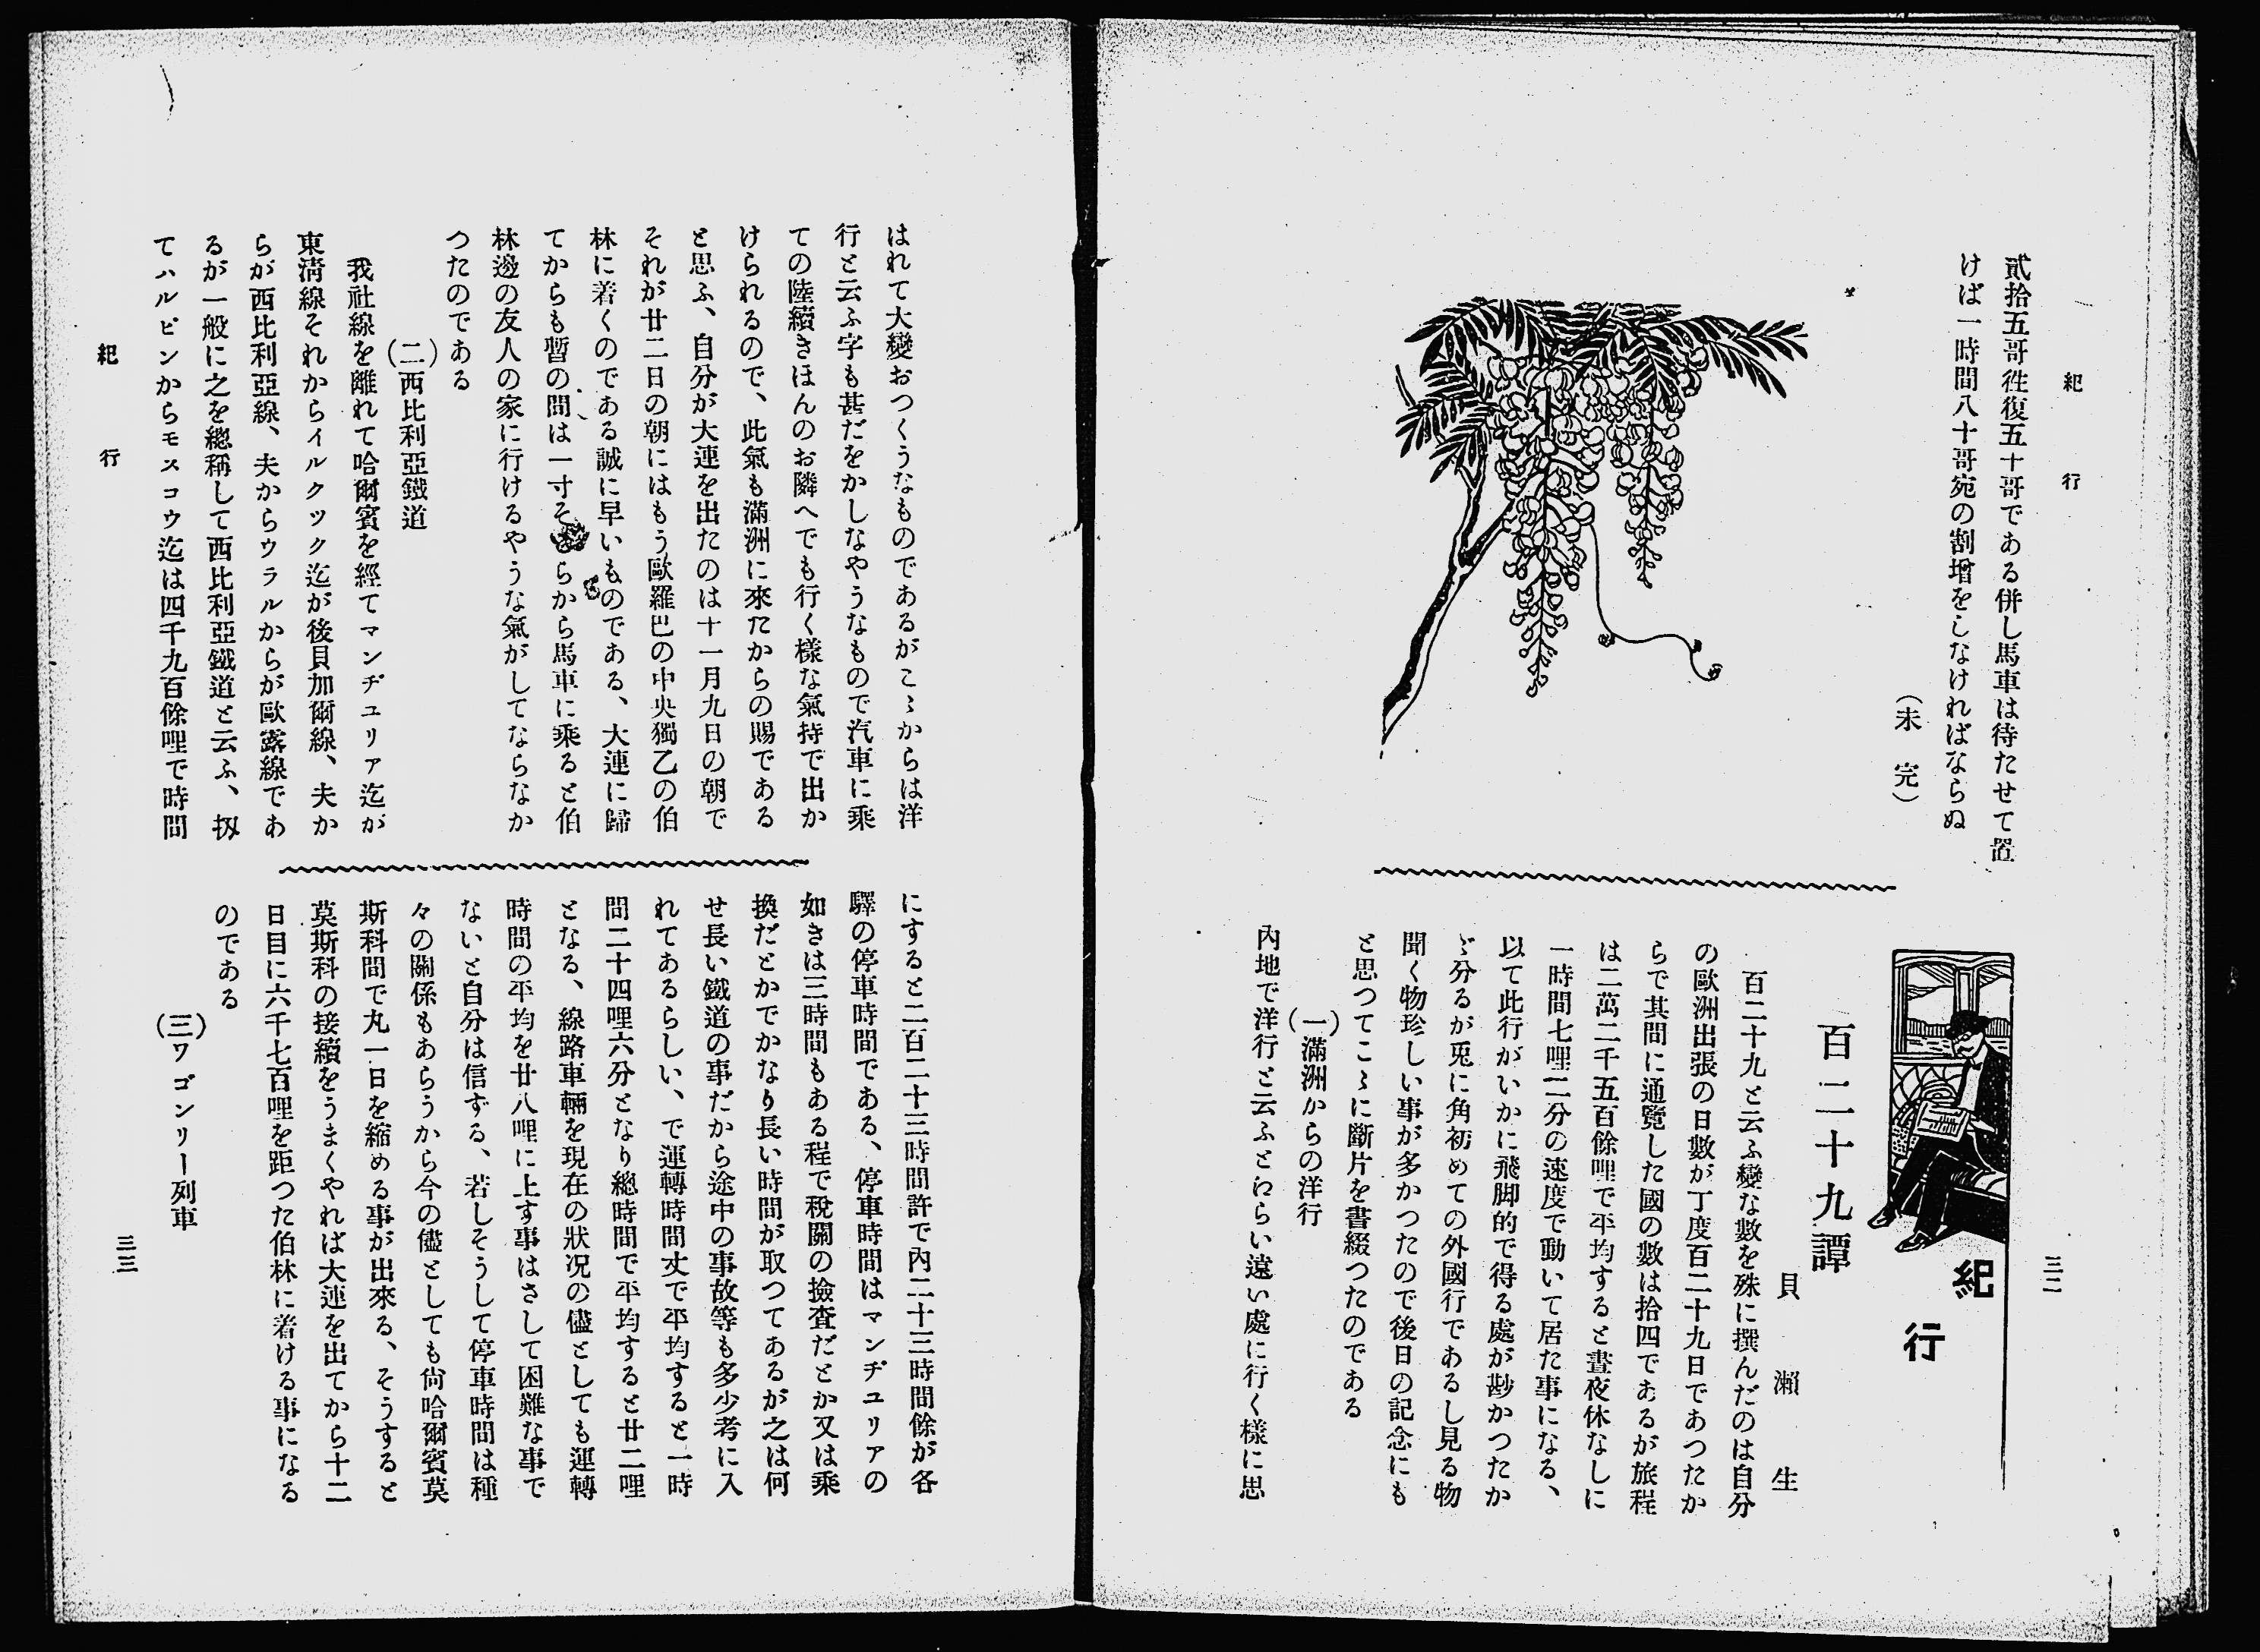 紀行
貳拾五哥徃復五十哥である併し馬車は待たせて置
けば一時間八十哥宛の割増をしなければならぬ
（未完）
三二
紀行
百二十九譚
貝瀬生
百二十九と云ふ變な數を殊に撰んだのは自分
の歐洲出張の日數が丁度百二十九日であつたか
らで其間に通覽した國の數は拾四であるが旅程
は二萬二千五百餘哩で平均すると晝夜休なしに
一時間七哩二分の速度で動いて居た事になる、
以て此行がいかに飛脚的で得る處が尠かつたか
ゞ分るが兎に角初めての外國行であるし見る物
聞く物珍しい事が多かつたので後日の記念にも
と思つてこゝに斷片を書綴つたのである
（一）滿洲からの洋行
內地で洋行と云ふとゑらい遠い處に行く樣に思
はれて大變おつくうなものであるがこゝからは洋
行と云ふ字も甚だをかしなやうなもので汽車に乘
ての陸續きほんのお隣へでも行く樣な氣持で出か
けられるので、此氣も滿洲に來たからの賜である
と思ふ、自分が大連を出たのは十一月九日の朝で
それが廿二日の朝にはもう歐羅巴の中央獨乙の伯
林に着くのである誠に早いものである、大連に歸
てからも暫の間は一寸そこらから馬車に乘ると伯
林邊の友人の家に行けるやうな氣がしてならなか
つたのである
（二）西比利亞鐵道
我社線を離れて哈爾賓を經てマンヂユリア迄が
東淸線それからイルクツク迄が後貝加爾線、夫か
らが西比利亞線、夫からウラルからが歐露線であ
るが一般に之を總稱して西比利亞鐵道と云ふ、扨
てハルピンからモスコウ迄は四千九百餘哩で時間
にすると二百二十三時間許で內二十三時間餘が各
驛の停車時間である、停車時間はマンヂユリアの
如きは三時間もある程で稅關の撿査だとか又は乘
換だとかでかなり長い時間が取つてあるが之は何
せ長い鐵道の事だから途中の事故等も多少考に入
れてあるらしい、で運轉時間丈で平均すると一時
間二十四哩六分となり總時間で平均すると廿二哩
となる、線路車輛を現在の狀況の儘としても運轉
時間の平均を廿八哩に上す事はさして困難な事で
ないと自分は信ずる、若しそうして停車時間は種
々の關係もあらうから今の儘としても尙哈爾賓莫
斯科間で丸一日を縮める事が出來る、そうすると
莫斯科の接續をうまくやれば大連を出てから十二
日目に六千七百哩を距つた伯林に着ける事になる
のである
（三）ワゴンリー列車
紀行
三三